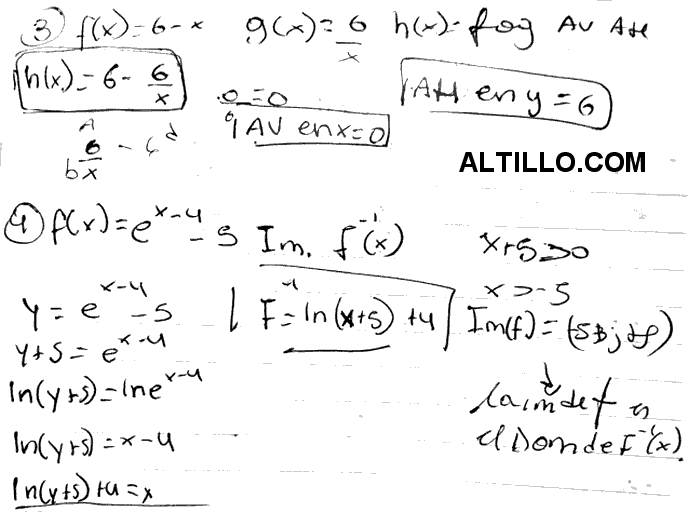 3) f(x)=6-x g(x)=6/x h(x)=fog AV AH
h(x)=6-6/x
0=0
AV en x=0
AH en y=6
6/x
ALTILLO.COM
4) f(x)=e^(x-4)-5 Im. f^-1(x)
x+5>0
x>-5
y=e^(x-4)-5
F^-1=ln(x+5)+4
Im(f)=
y+5=e^(x-4)
ln(y+5)=lne^(x-4)
la im de f es
el Dom de F^-1(x).
ln(y+5)=x-4
ln(y+5)+4=x